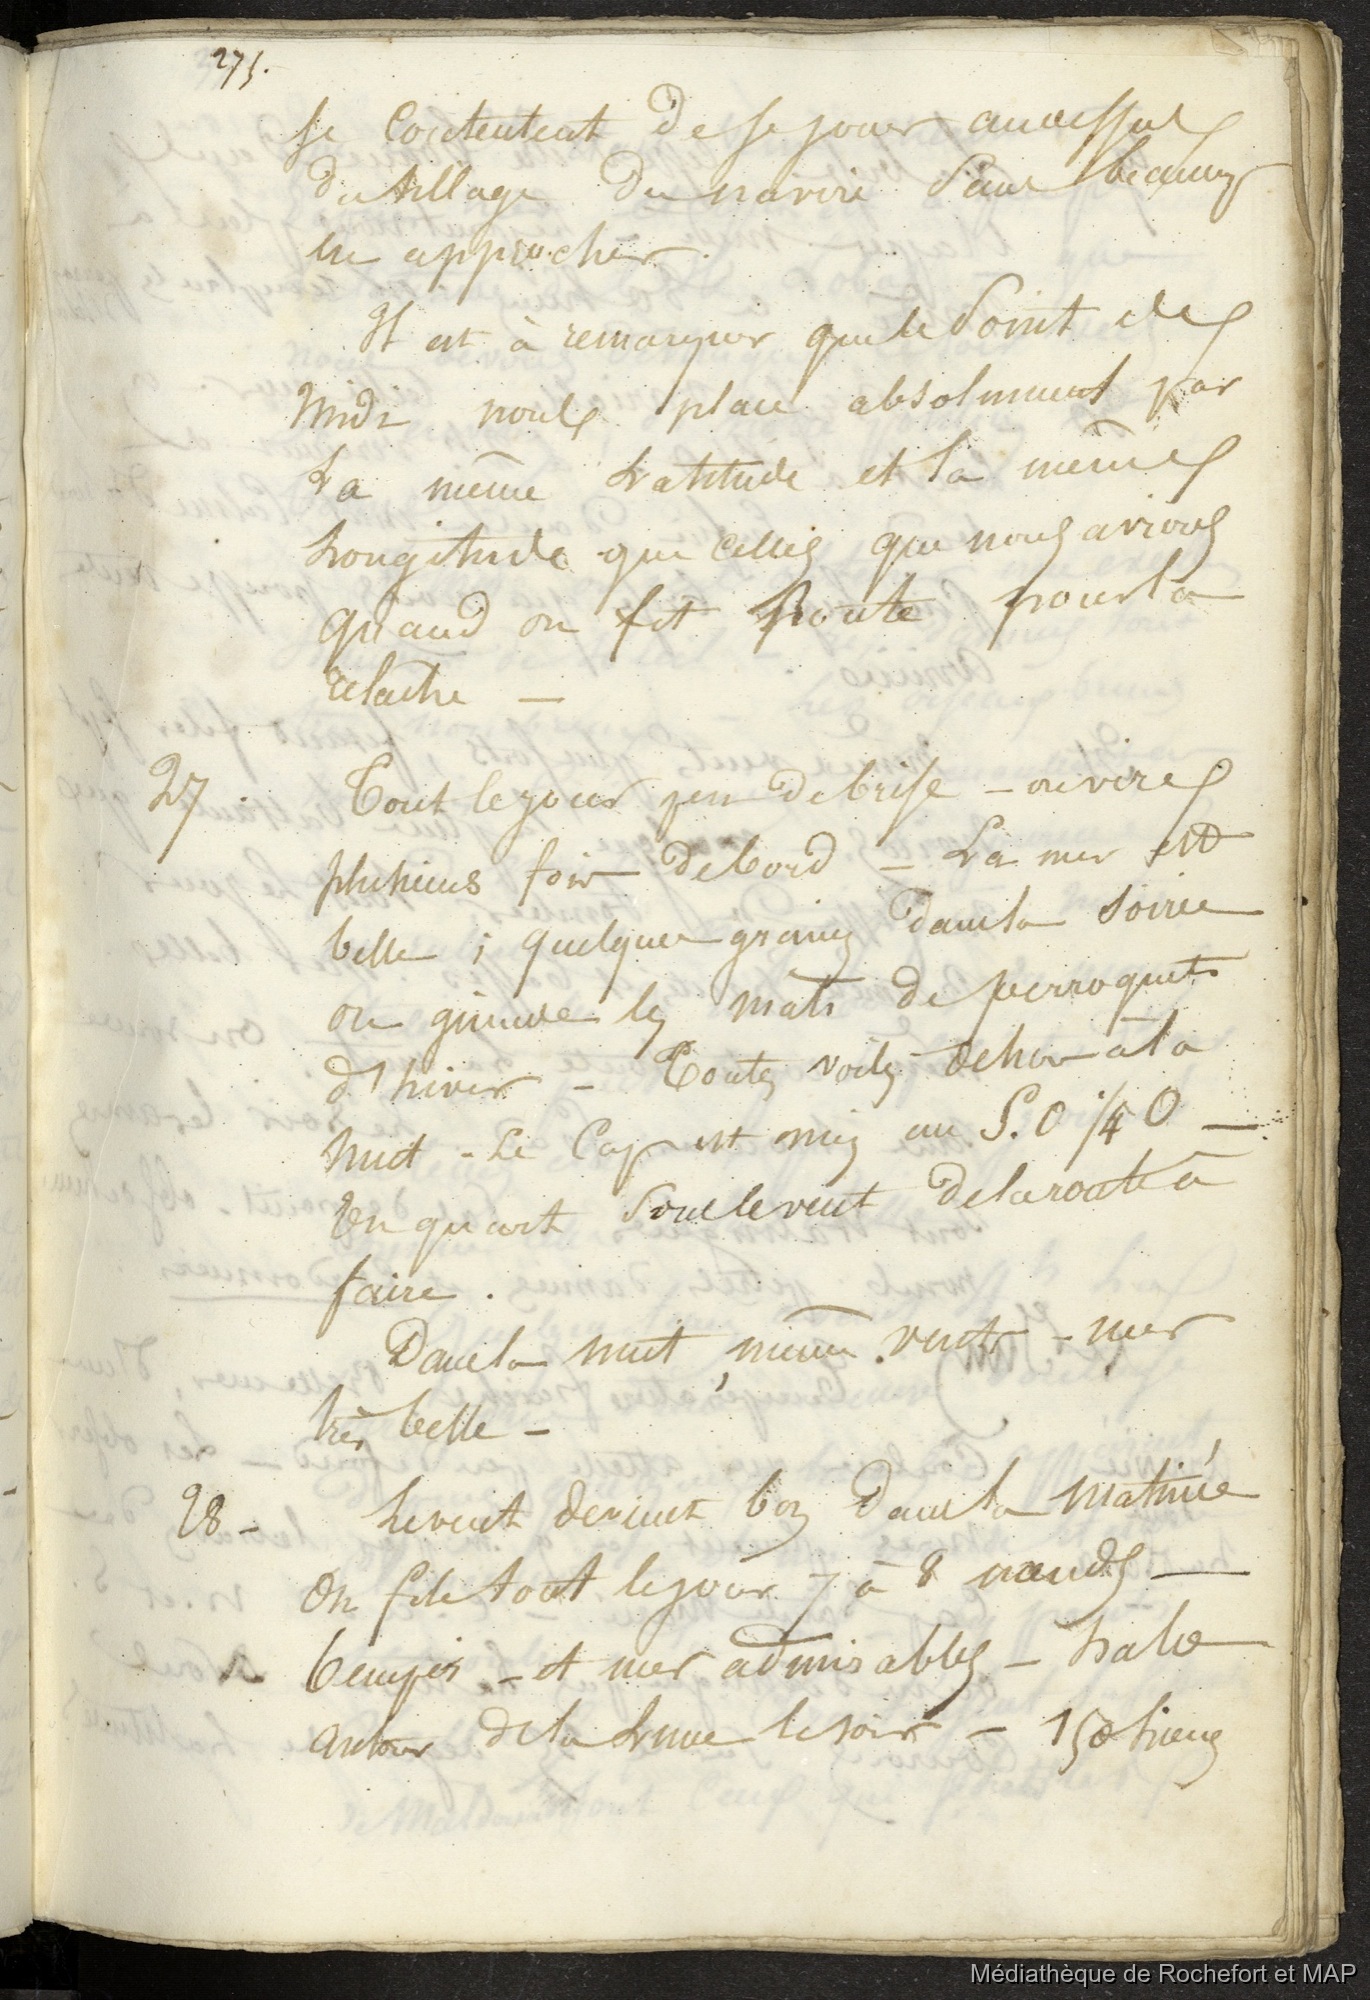 275.
se contentent de se jouer au dessus
du sillage du navire sans beaucoup
en approcher.
Il est à remarquer que le point de
midi nous place absolument par
La même Latitude et la même
Longitude que celles que nous avions
quand on fit Route pour la
relache —
27 Tout le jour peu de brise — on vire
plusieurs fois de bord — La mer est
belle ; quelques grains dans la soirée
on guinde les mâts de perroquets
d'hiver — Toutes voiles dehors à la
nuit - Le Cap est mis au S.O 1/4 O —
Un quart sous le vent de la route à
faire.
Dans la nuit, même vent - mer
très belle —
28 - Le vent devient bon dans la matinée
On file tout le jour 7 à 8 nœuds —
Temps - et mer admirables — halo
autour de la Lune le soir — 150 lieues
Médiathèque de Rochefort et MAP